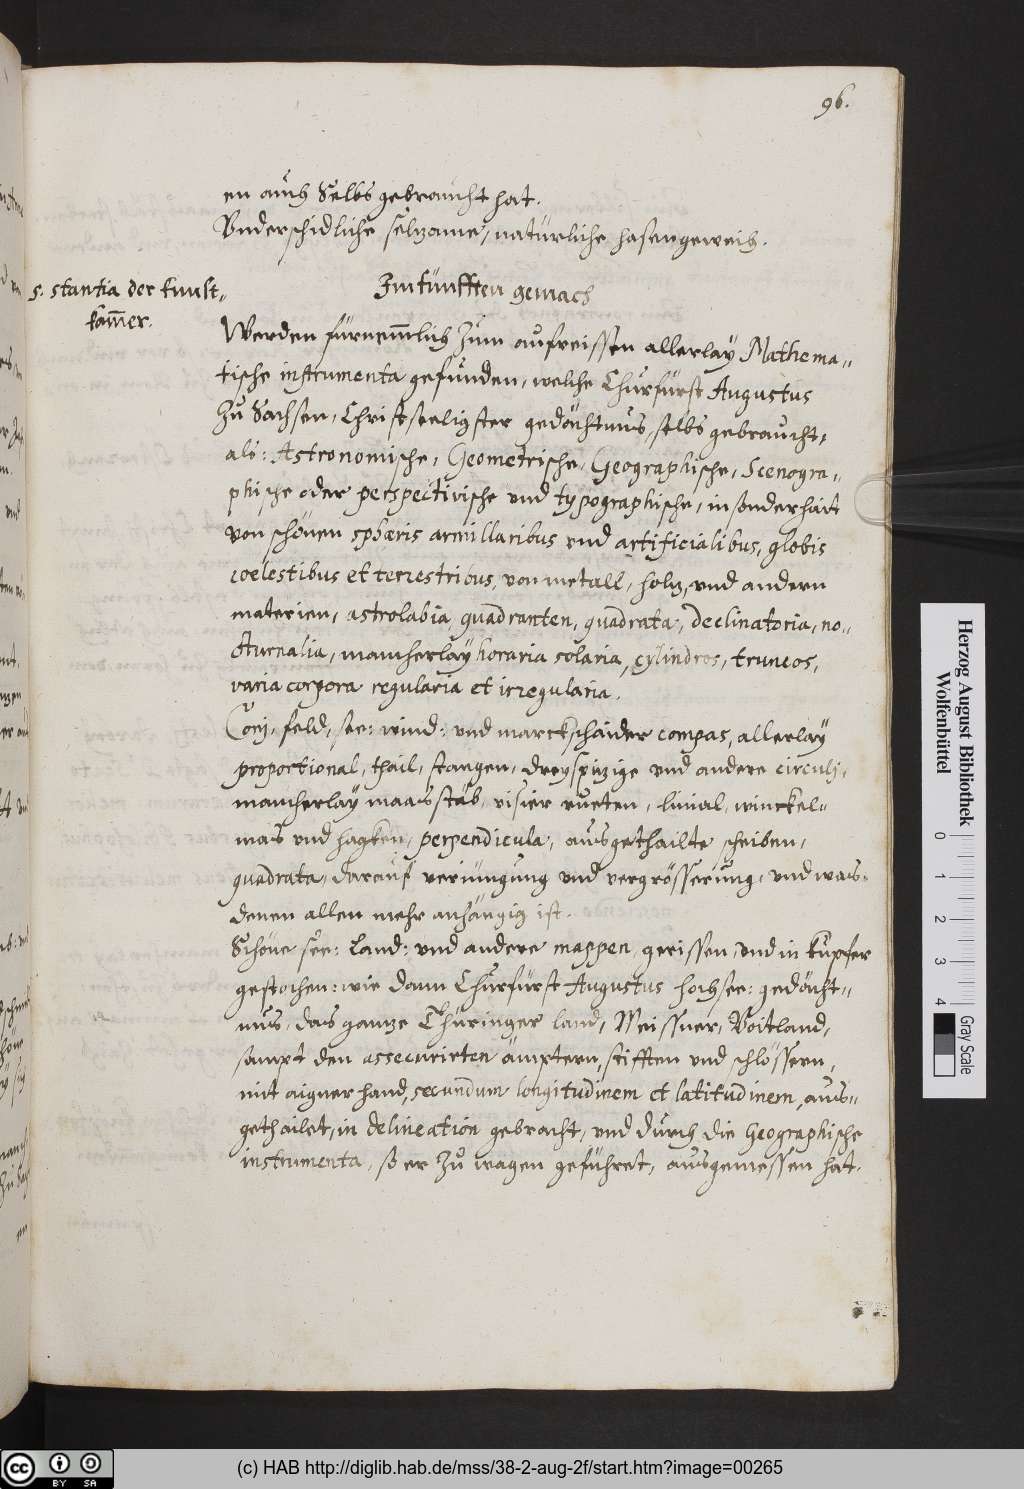 96.
en auch Selbs gebraucht hat.
Vnderschidliche selzame, natürliche hasengeweih.
5. stantia der kunst-
kam̄er.
Im fünfften gemach
Werden fürnem̄lich zum aufreissen allerlaÿ Mathema-
tische instrumenta gefunden, welche Churfürst Augustus
zu Sachsen, Christseeligster gedächtnus, selbs gebraucht,
als: Astronomische, Geometrische, Geographische, Scenogra-
phische oder perspectivische vnd typographische, in sonderhait
von schönen sphæris armillaribus vnd artificialibus, globis
coelestibus et terrestribus, von metall, holz, vnd andern
materien, astrolabia, quadranten, quadrata, declinatoria, no-
cturnalia, mancherlaÿ horaria solaria, cylindros, truncos,
varia corpora regularia et irregularia.
feld, see: wind: vnd marckschaider compas, allerlaÿ
proportional, thail, stangen, dreyspizige vnd andere circulj,
mancherlaÿ maasstäb, visier rueten, linial, winckel-
mas vnd hagken, perpendicula, ausgethailte scheiben,
quadrata, darauf veriüngung vnd vergrösserung, vnd was
denen allen mehr anhängig ist.
Schöne see: Land: vnd andere mappen, gerissen, vnd in kupfer
gestochen: wie dann Churfürst Augustus hochsee: gedächt-
nus, das ganze Thüringer land, Meissner, Voitland,
sampt den assecurirten ämptern, stifften vnd schlössern,
mit aigner hand, secundum longitudinem et latitudinem, aus-
gethailet, in delineation gebracht, vnd durch die Geographische
instrumenta, so er zu wagen geführet, ausgemessen hat.
Herzog August Bibliothek
Wolfenbüttel
0 1 2 3 4
Gray Scale
cc BY SA
(c) HAB http://diglib.hab.de/mss/38-2-aug-2f/start.htm?image=00265